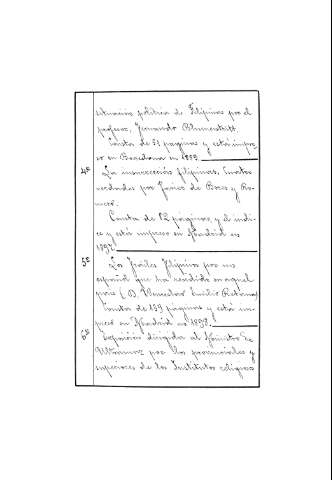 situación política de Filipinas por el
profesor, Fernando Blumentritt.
Consta de 51 paginas y está impre-
so en Barcelona en
4º La insurrección filipina,
por Javier de y Ro-
mero.
Consta de 52 paginas y el indi-
ce y está impreso en Madrid en
1897.
5º Los Frailes Filipinos por un
español que ha residido en aquel
pais (D. Wenceslao Emilio Retana)
Consta de 139 paginas y está im-
preso en Madrid en 1898.
6º Exposición dirigida al Ministro de
Ultramar por los provinciales y
superiores de los Institutos religiosos